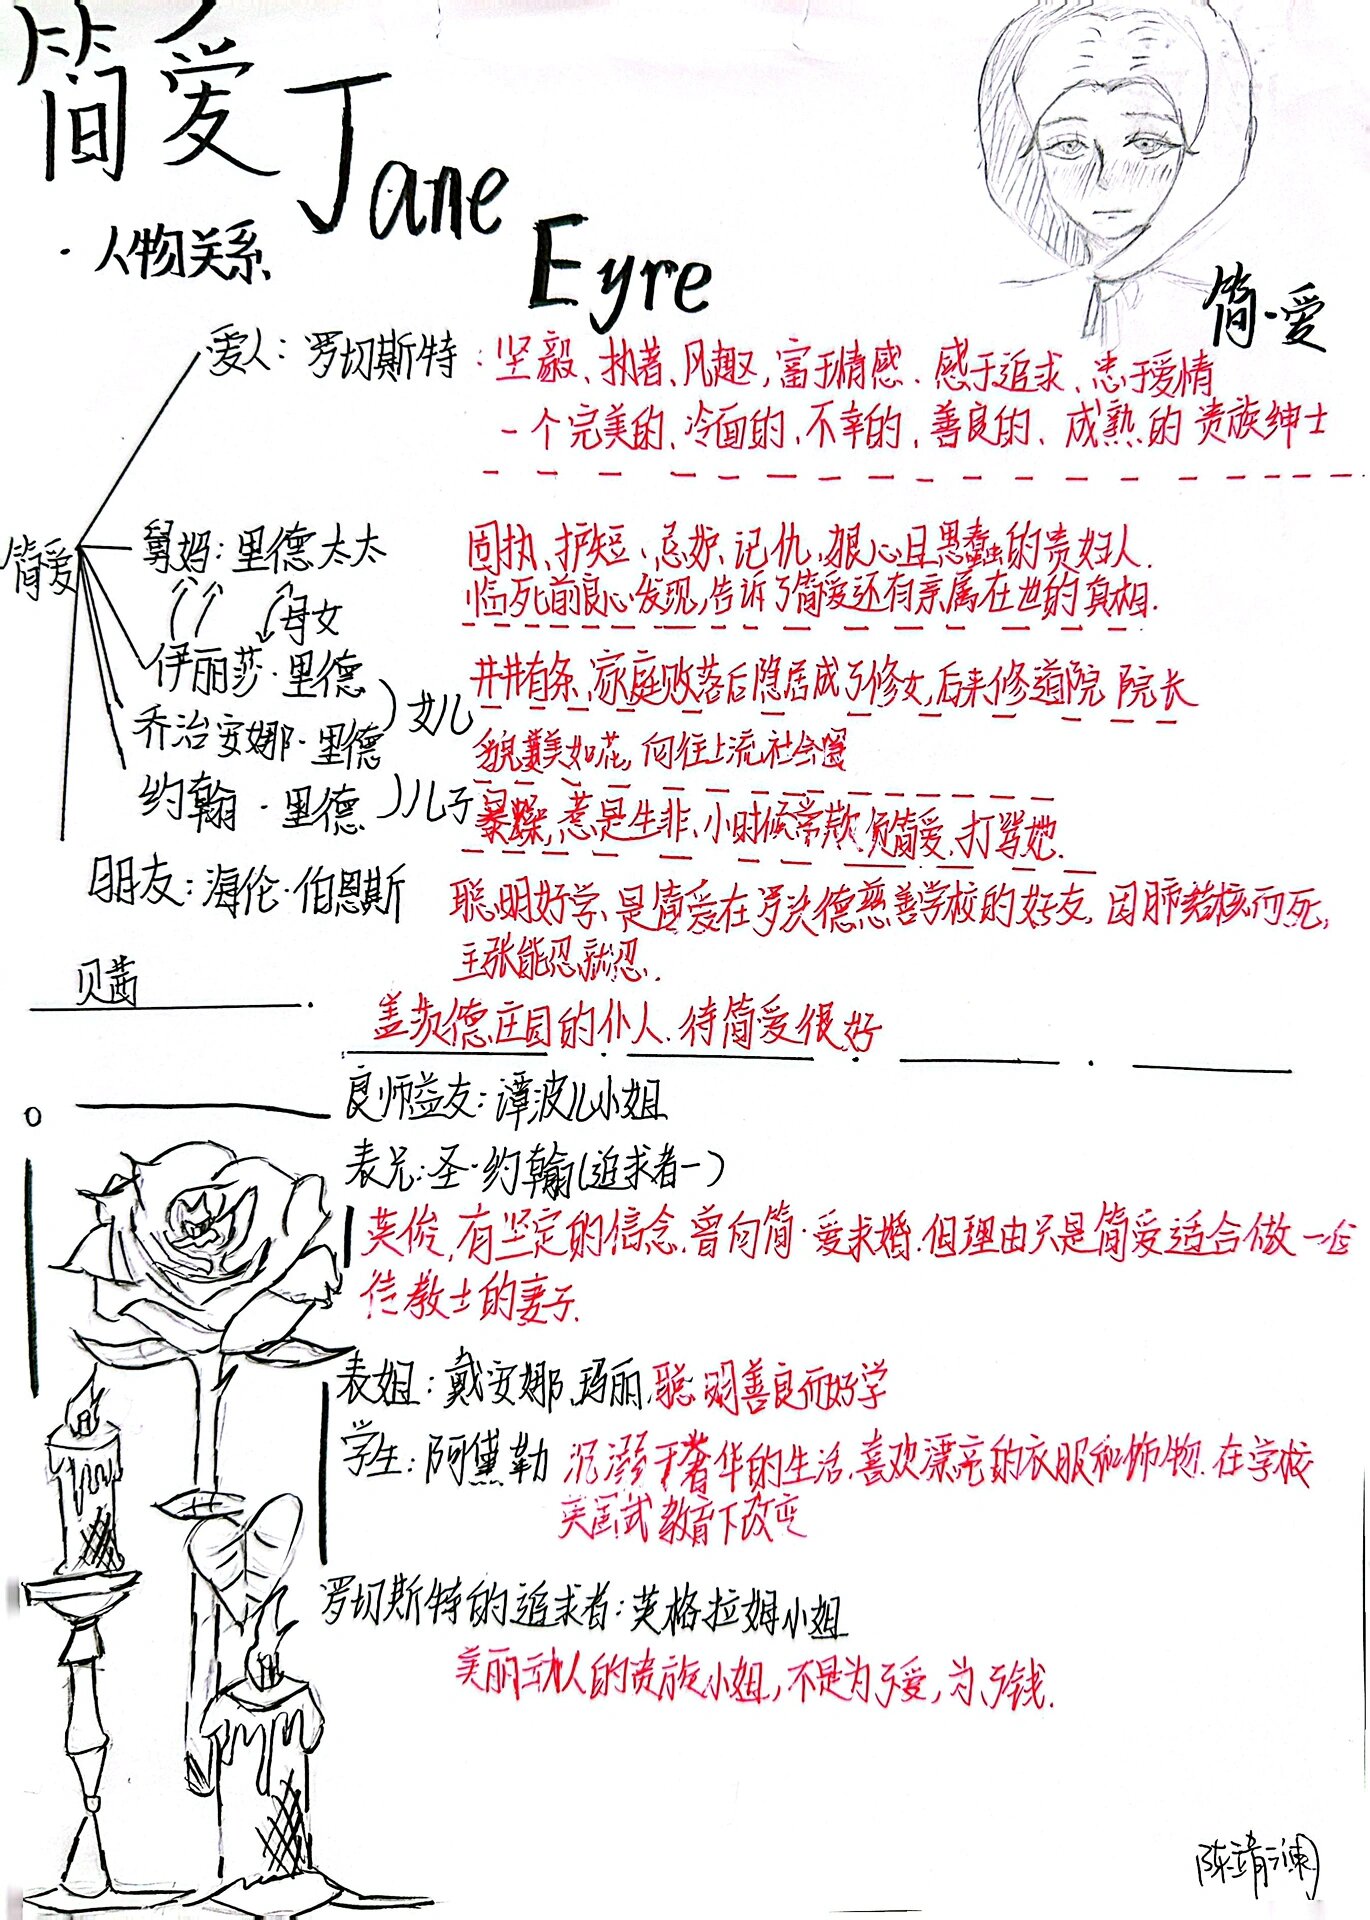 简爱 Jane
Eyre
·人物关系
简·爱
爱人：罗切斯特：坚毅、执著、风趣，富于情感．感于追求、忠于爱情
一个完美的、冷面的、不幸的、善良的、成熟的贵族绅士
简爱
舅妈：里德太太 固执、护短、忌妒、记仇、狠心且愚蠢的贵妇人．
临死前良心发现，告诉了简爱还有亲属在世的真相．
母女
伊丽莎·里德 井井有条、家庭败落后隐居成了修女，后来修道院 院长
乔治安娜·里德 女儿 貌美如花，向往上流社会
约翰·里德 儿子 暴躁，惹是生非、小时候常欺负简爱，打骂她．
朋友：海伦·伯恩斯 聪明好学、是简爱在罗沃德慈善学校的好友，因肺结核而死，
主张能忍就忍．
贝茜
盖茨德庄园的仆人．待简爱很好
良师益友：谭波儿小姐
表兄：圣·约翰（追求者一）
英俊，有坚定的信念．曾向简·爱求婚．但理由只是简爱适合做一位
传教士的妻子．
表姐：戴安娜、玛丽．聪明善良而好学
学生：阿黛勒 沉溺于奢华的生活．喜欢漂亮的衣服和饰物．在学校
英国式教育下改变
罗切斯特的追求者：英格拉姆小姐
美丽动人的贵族小姐，不是为了爱，为了钱．
陈靖澜